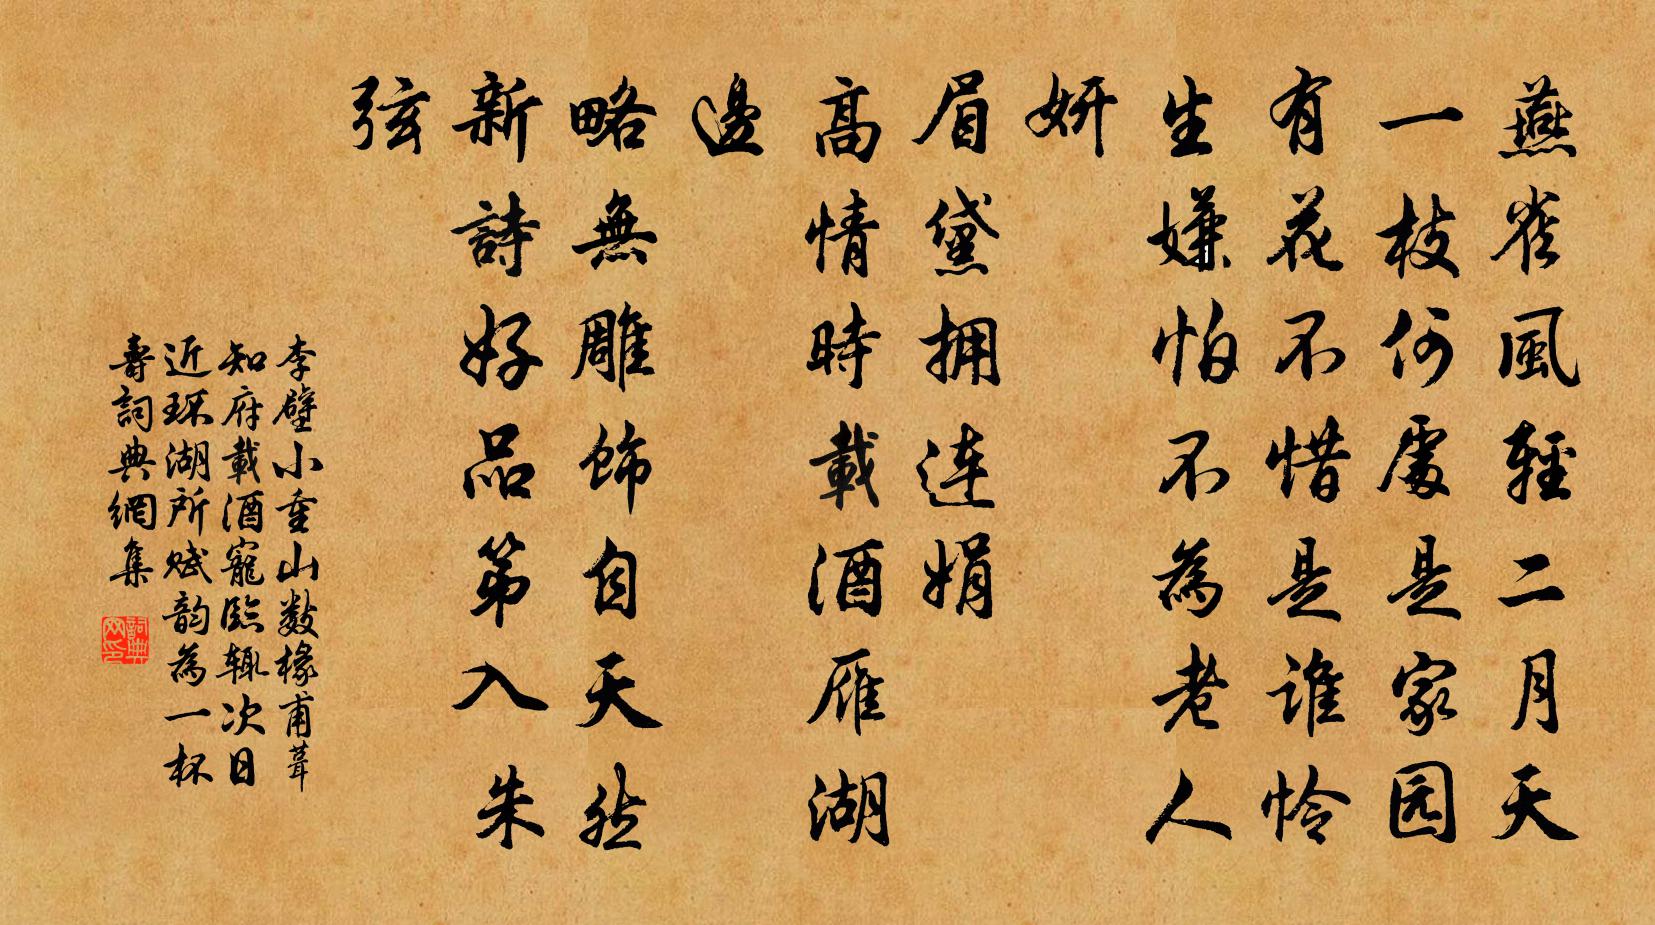 燕雀風輕二月天
一枝何處是家园
有花不惜是誰怜
生嫌怕不為老人
妍
眉黛拥连娟
高情時載酒雁湖
邊
略無雕飾自天然
新詩好品第入朱
弦
李壁小重山数椽甫葺
知府載酒寵臨辄次日
近环湖所赋韵為一杯
壽詞典網集